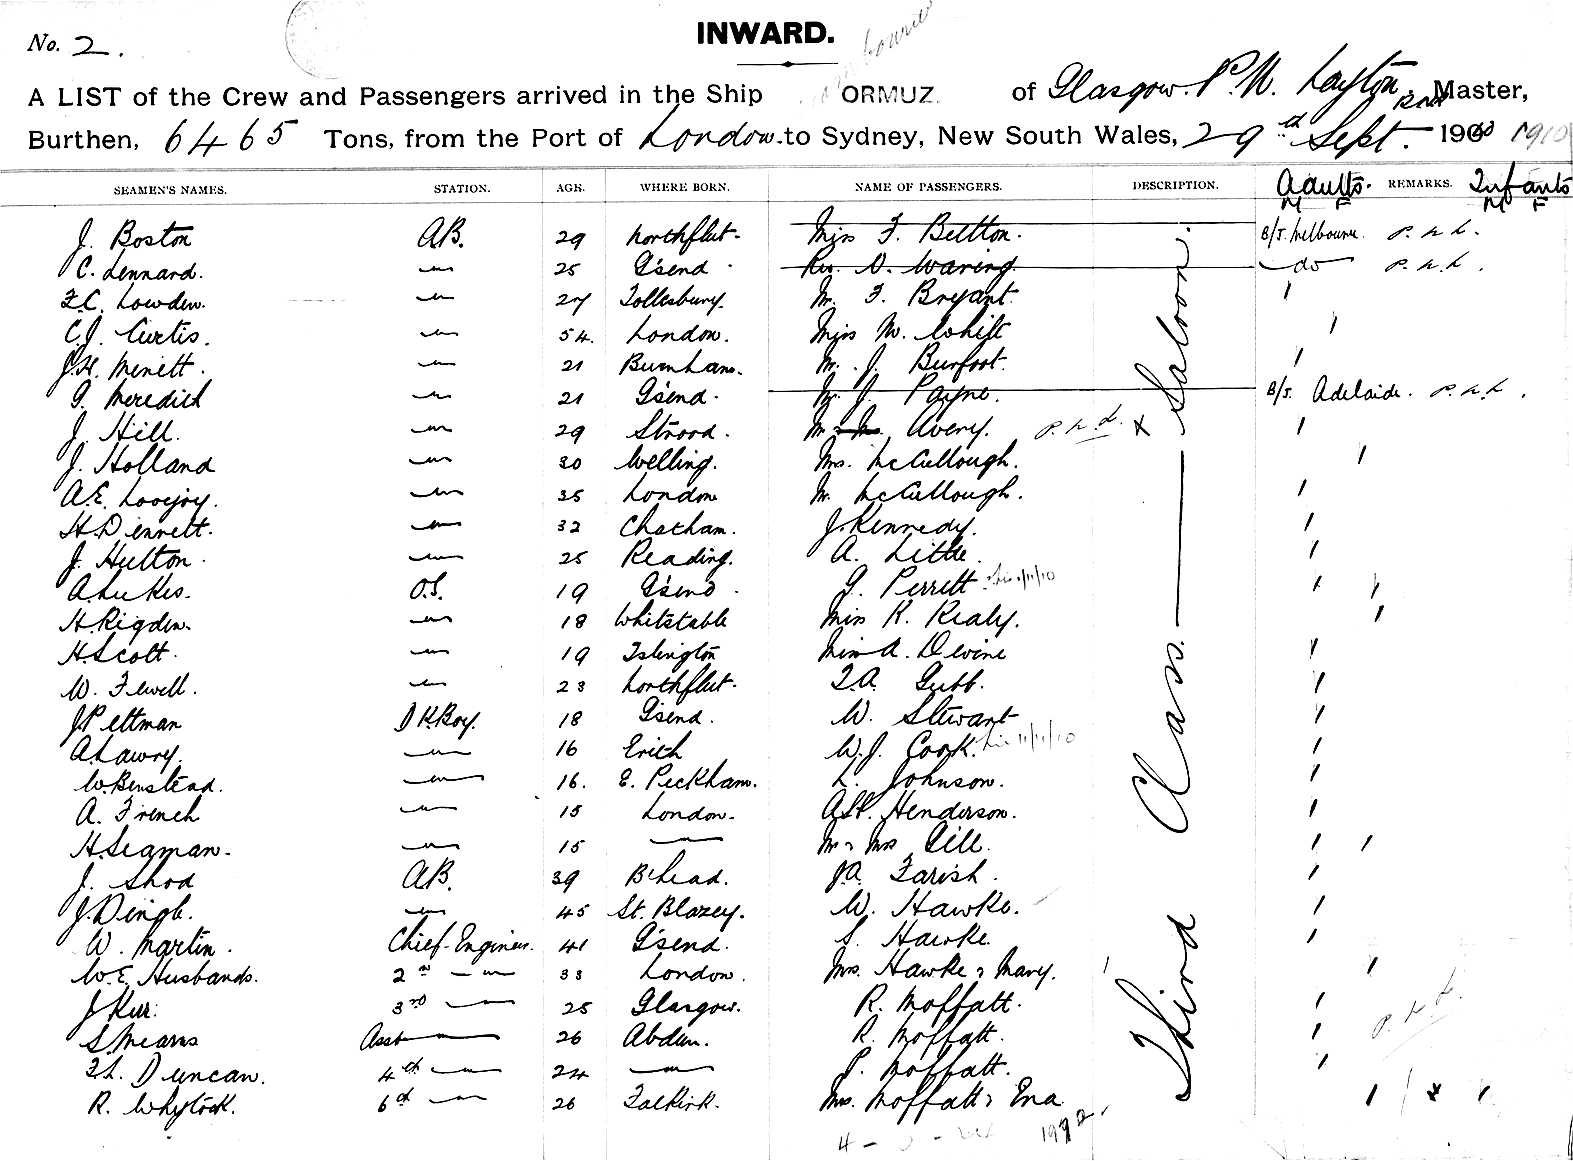 INWARD.
No. 2.
A LIST of the Crew and Passengers arrived in the Ship ORMUZ of Glasgow. P. N. Layton RNR Master,
Burthen, 6465 Tons, from the Port of London. to Sydney, New South Wales, 29th Sept. 1900 1910
SEAMEN'S NAMES. STATION. AGE. WHERE BORN. NAME OF PASSENGERS. DESCRIPTION. Adults. REMARKS. Infants
M F M F
J. Boston A.B. 29 Northflut. Miss F. Beltton. B/S. Melbourne. P. N. L.
C. Lennard. 25 G'send Rev. O. Waring. do P. N. L.
F.C. Lowden. 27 Tollesbury. Mr. F. Bryant.
C.J. Curtis. 54. London. Miss M. White
J.H. Minett. 21 Burnham. Mr. J. Burfoot.
G. Meredith 21 G'send. Mr. J. Payne. B/S. Adelaide. P. N. L.
J. Hill. 29 Strood. Avery. P. N. L. x
J. Holland 30 Welling. Mrs. McCullough.
A.E. Lovejoy. 35 London Mr. McCullough.
H. Dennett. 32 Chatham. J. Kennedy.
J. Hulton. 25 Reading. A. Little.
A. Lukes. O.S. 19 G'send. G. Perrett. 11/11/10
H. Rigden. 18 Whitstable Miss K. Kealy.
H. Scott. 19 Islington Miss A. Devine
W. Fewell. 23 Northflut. T.A. Gubb.
J. Pettman DK Boy. 18 G'send. W. Stewart
A. Lawry. 16 Erith W.J. Cook. 11/11/10
W. Benstead. 16. E. Peckham. L. Johnson.
A. French 15 London. Henderson.
H. Seaman. 15 Mr & Mrs Gill.
J. Shod A.B. 39 B'head. J.A. Farish.
J. Dingle. 45 St. Blazey. W. Hawke.
W. Martin. Chief Engineer. 41 G'send. S. Hawke.
W.E. Husbands. 2nd 33 London. Mrs. Hawke & Mary.
J. Kerr. 3rd 25 Glasgow. R. Moffatt.
S. Mearns Asst 26 Abdeen. R. Moffatt. P. N. L.
F.L. Duncan. 4th 24 P. Moffatt.
R. Whytock. 6th 26 Falkirk. Mrs. Moffatt & Ena
Third Class Saloon.